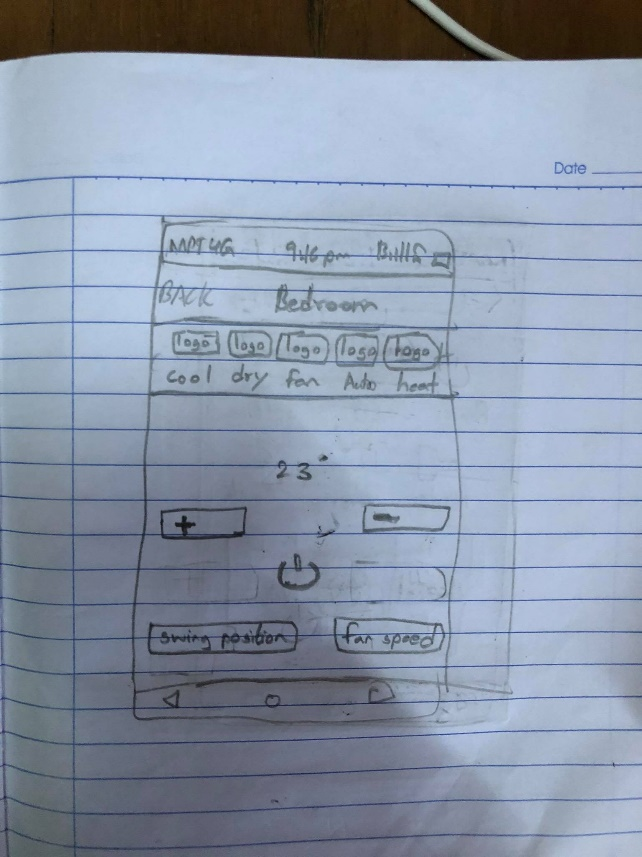 Date
MPT 4G 9:46 pm
BACK Bedroom
logo logo logo logo logo
cool dry fan Auto heat
23°
+ -
swing position fan speed